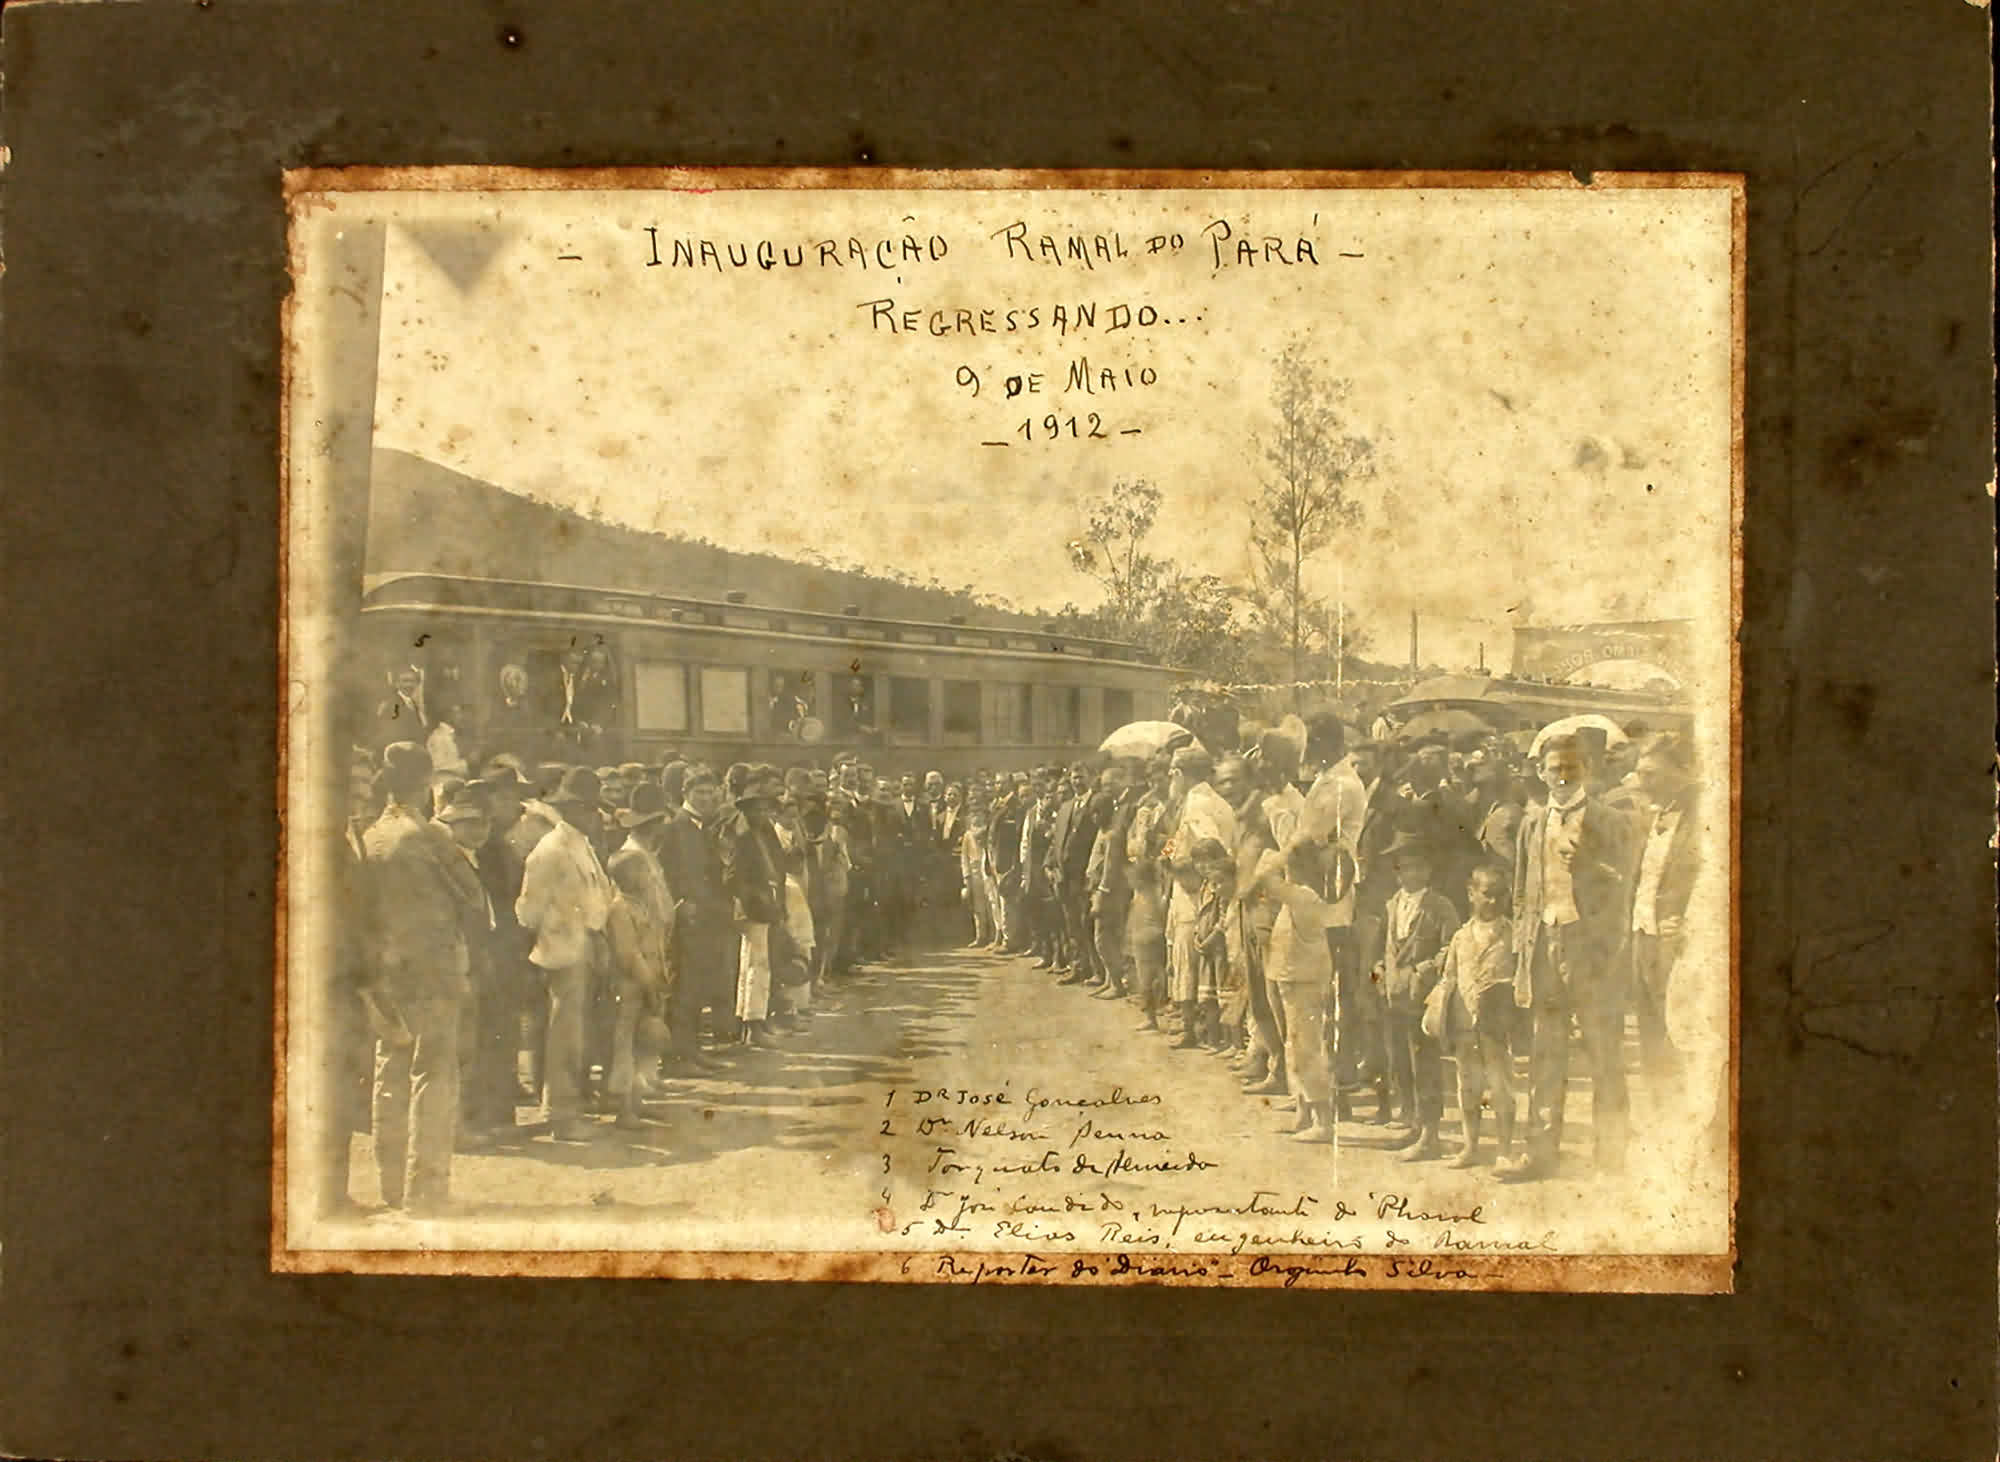 - INAUGURAÇÃO RAMAL DO PARÁ -
REGRESSANDO...
9 DE MAIO
- 1912 -
5
1 2
3
4
1 DR José Gonçalves
2 Dr Nelson Penna
3 Torquato de Almeida
4 Dr José Candido, representante do "Pharol
5 Dr. Elias Reis, engenheiro do Ramal
6 Reporter do "Diario" - Silva -